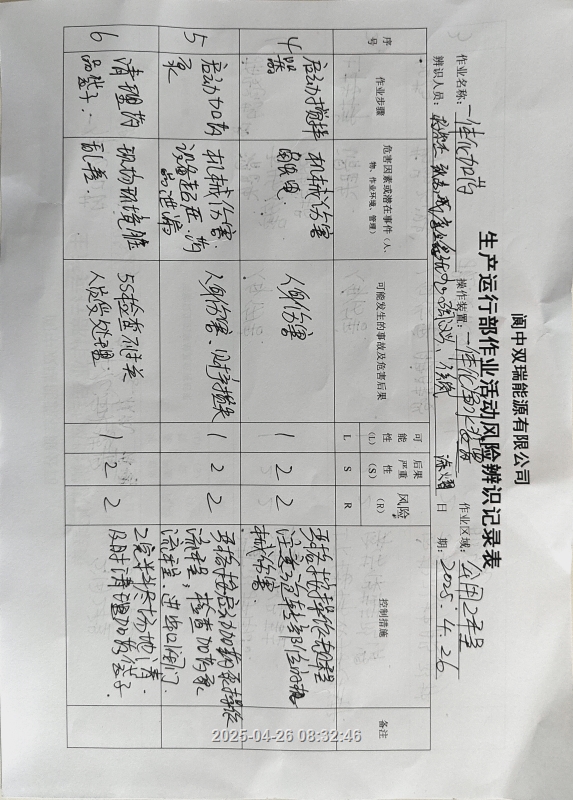 阆中双瑞能源有限公司
生产运行部作业活动风险辨识记录表
作业名称：一体化加药 操作装置：一体化 作业区域：公用工程
辨识人员： 日 期：2025.4.26
序号 作业步骤 危害因素或潜在事件（人、物、作业环境、管理） 可能发生的事故及危害后果 可能性（L） 后果严重性（S） 风险（R） 控制措施 备注
L S R
4 启动搅拌器 机械伤害 人身伤害 1 2 2 严格按操作规程 注意运转部位的机械伤害
5 启动加药泵 机械伤害：设备超压、药品泄漏 人身伤害、财产损失 1 2 2 严格按启动加药泵操作流程，检查加药泵流程、进出口阀门
6 清理药品袋子 现场环境脏乱差 5S检查 人员处理 1 2 2 场地清 及时清理加药袋子
2025-04-26 08:32:46